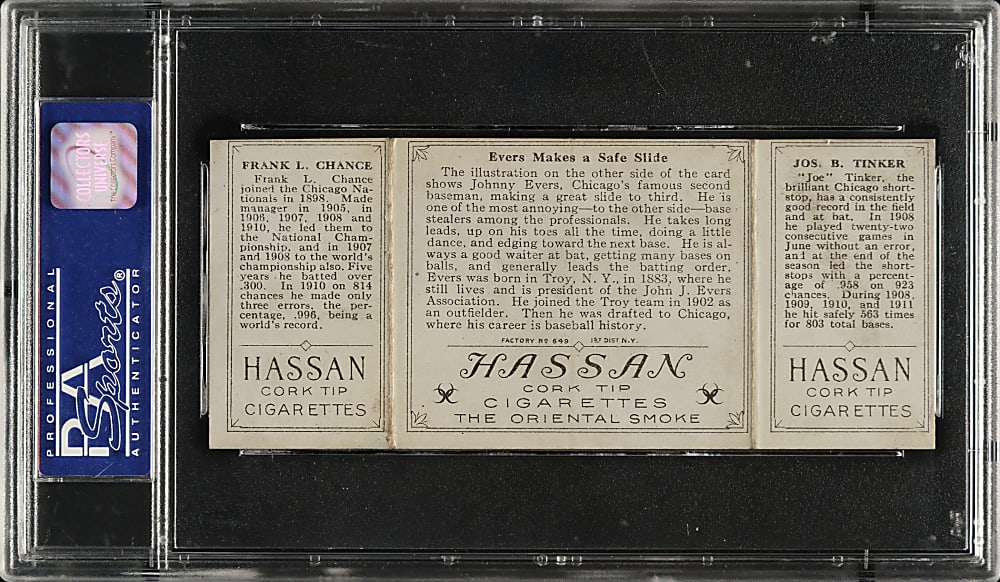 COLLECTORS
UNIVERSE
PROFESSIONAL
PSA
Sports®
AUTHENTICATOR
FRANK L. CHANCE
Frank L. Chance
joined the Chicago Na-
tionals in 1898. Made
manager in 1905, in
1906, 1907, 1908 and
1910, he led them to
the National Cham-
pionship, and in 1907
and 1908 to the world's
championship also. Five
years he batted over
.300. In 1910 on 814
chances he made only
three errors, the per-
centage, .996, being a
world's record.
HASSAN
CORK TIP
CIGARETTES
Evers Makes a Safe Slide
The illustration on the other side of the card
shows Johnny Evers, Chicago's famous second
baseman, making a great slide to third. He is
one of the most annoying—to the other side—base
stealers among the professionals. He takes long
leads, up on his toes all the time, doing a little
dance, and edging toward the next base. He is al-
ways a good waiter at bat, getting many bases on
balls, and generally leads the batting order.
Evers was born in Troy, N. Y., in 1883, where he
still lives and is president of the John J. Evers
Association. He joined the Troy team in 1902 as
an outfielder. Then he was drafted to Chicago,
where his career is baseball history.
FACTORY No 649 1ST DIST N.Y.
HASSAN
CORK TIP
CIGARETTES
THE ORIENTAL SMOKE
JOS. B. TINKER
"Joe" Tinker, the
brilliant Chicago short-
stop, has a consistently
good record in the field
and at bat. In 1908
he played twenty-two
consecutive games in
June without an error,
and at the end of the
season led the short-
stops with a percent-
age of .958 on 923
chances. During 1908,
1909, 1910, and 1911
he hit safely 563 times
for 803 total bases.
HASSAN
CORK TIP
CIGARETTES